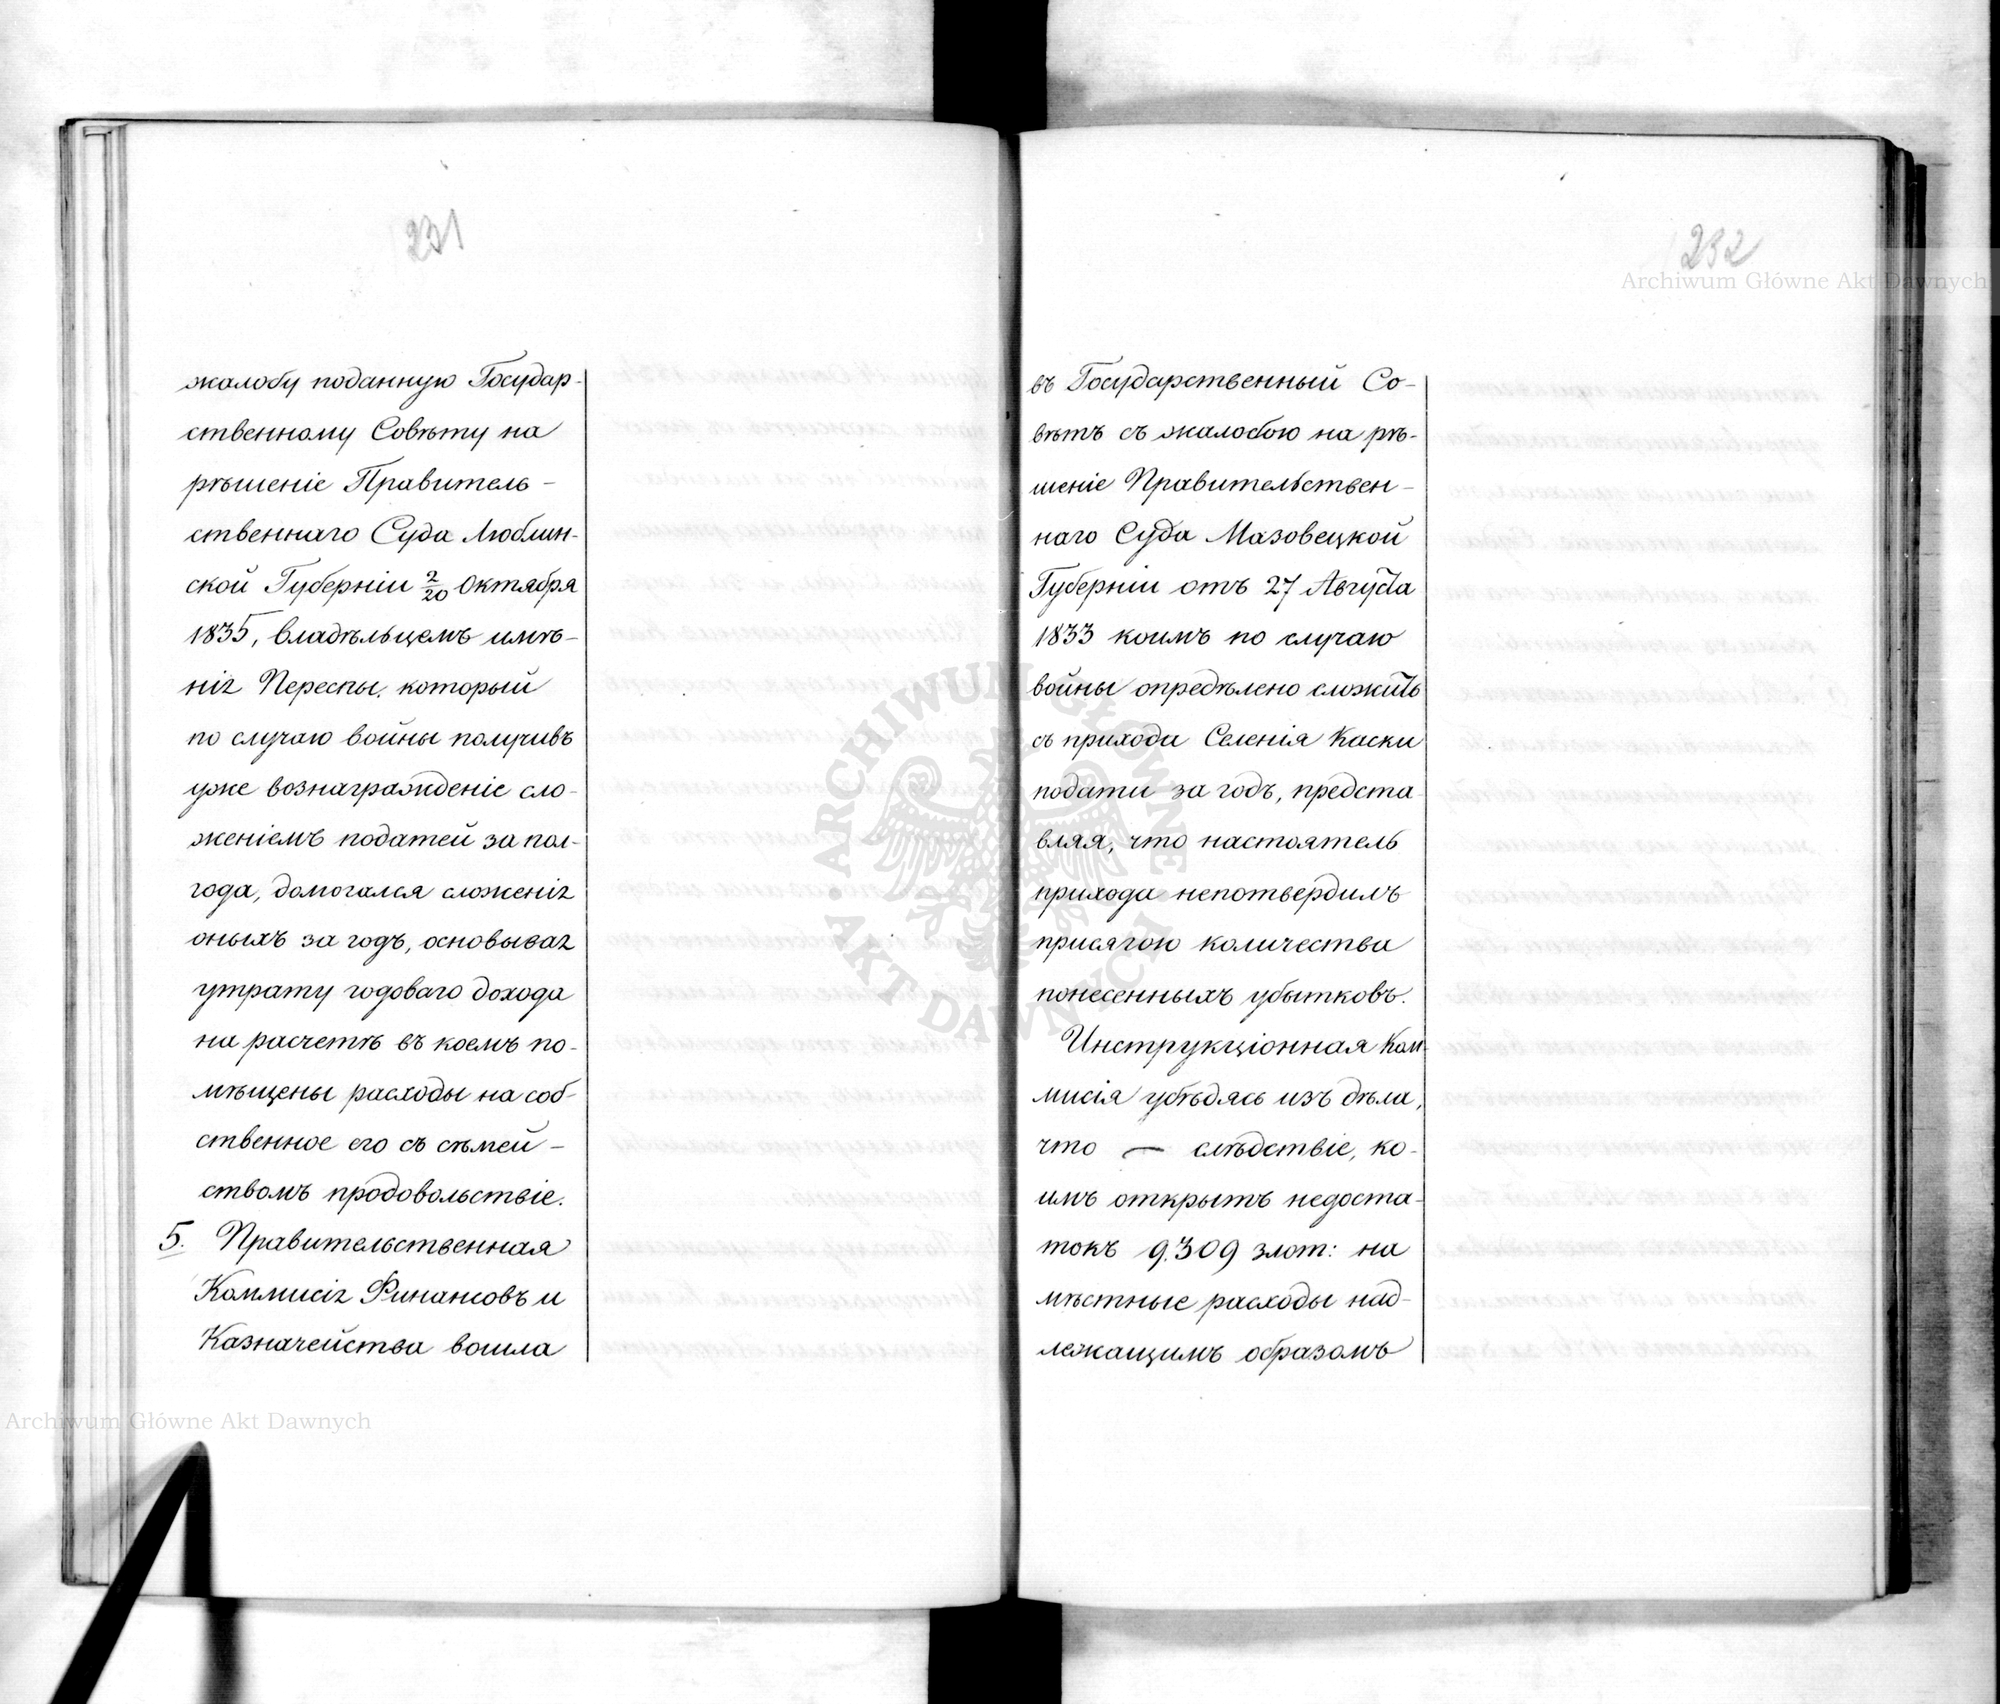 231
жалобу поданную Государ-
ственному Совѣту на
рѣшеніе Правитель-
ственнаго Суда Люблин-
ской Губерніи 2/20 Октября
1835, владѣльцемъ имѣ-
нія Переспы, который
по случаю войны получивъ
уже вознагражденіе сло-
женіемъ податей за пол-
года, домогался сложенія
оныхъ за годъ, основывая
утрату годоваго дохода
на расчетѣ въ коемъ по-
мѣщены расходы на соб-
ственное его съ сѣмей-
ствомъ продовольствіе.
5. Правительственная
Коммисія Финансовъ и
Казначейства вошла
232
въ Государственный Со-
вѣтъ съ жалобою на рѣ-
шеніе Правительствен-
наго Суда Мазовецкой
Губерніи отъ 27 Августа
1833 коимъ по случаю
войны опредѣлено сложить
съ прихода Селенія Каски
подати за годъ, предста
вляя, что настоятель
прихода непотвердилъ
присягою количества
понесенныхъ убытковъ.
Инструкціонная Ком-
мисія убѣдясь изъ дѣла,
что — слѣдствіе, ко-
имъ открытъ недоста-
токъ 9.309 злот: на
мѣстные расходы над-
лежащимъ образомъ
Archiwum Główne Akt Dawnych
ARCHIWUM GŁÓWNE AKT DAWNYCH
Archiwum Główne Akt Dawnych